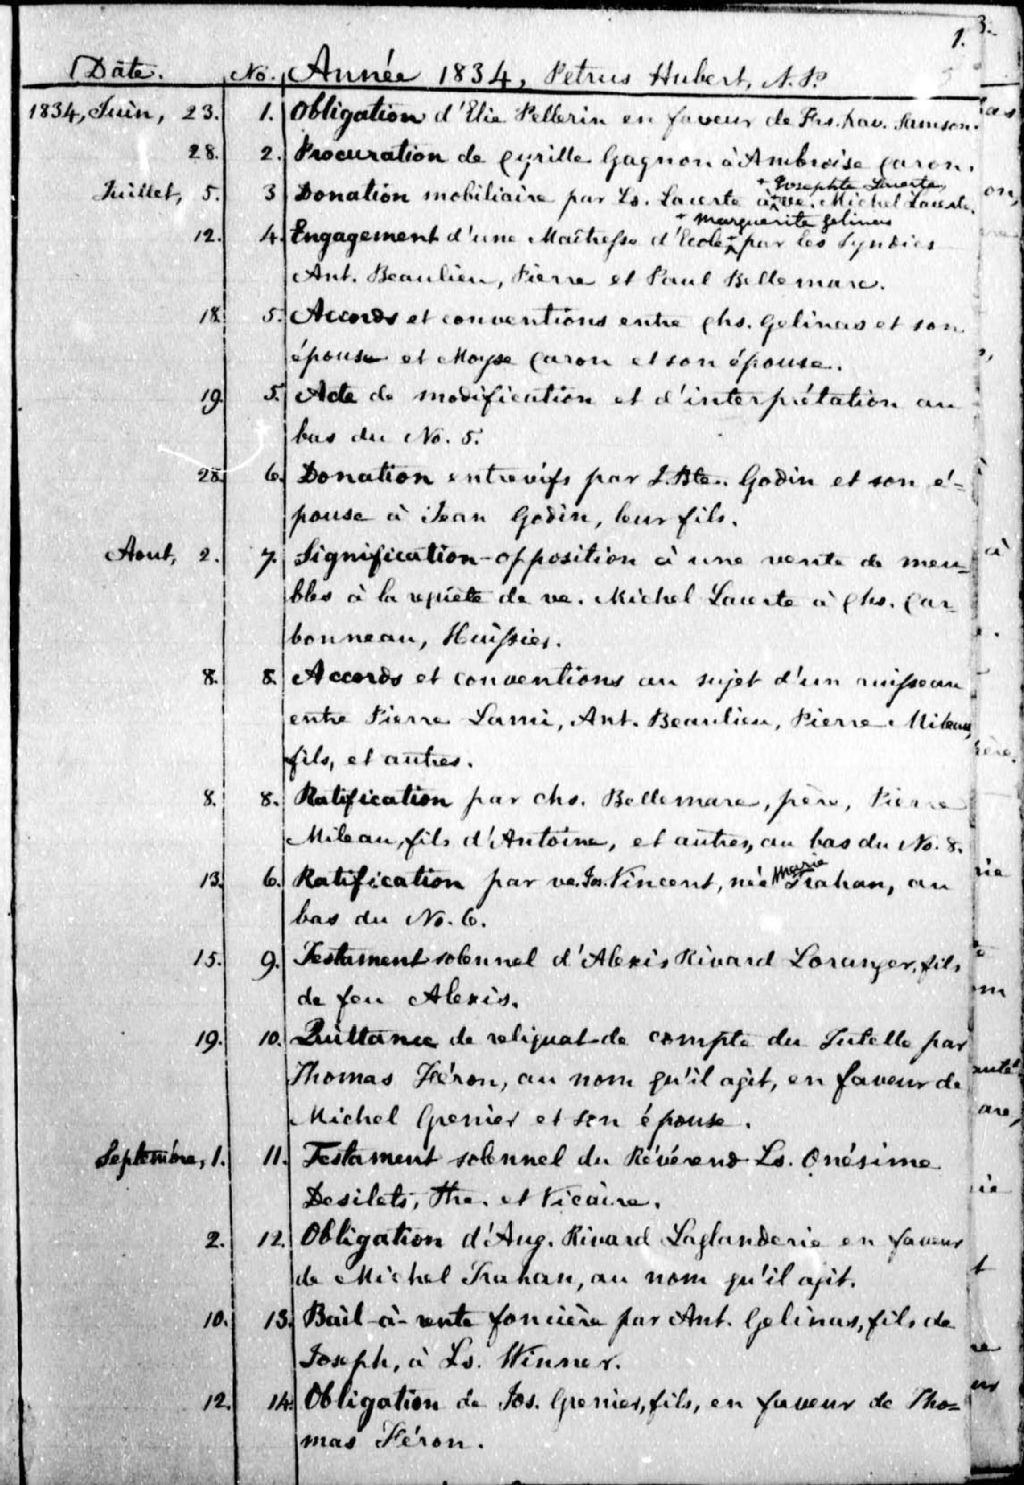 1.
Date. No. Année 1834, Petrus Hubert, N.P.
1834, Juin, 23. 1. Obligation d'Elie Pellerin en faveur de Frs. Xav. Samson.
28. 2. Procuration de Cyrille Gagnon à Ambroise Caron.
+ Josephte Lacerte
Juillet, 5. 3 Donation mobiliaire par Ls. Lacerte à + ve. Michel Lacerte.
+ Marguerite Gelinas
12. 4. Engagement d'une Maîtresse d'Ecole + par les Syndics
Ant. Beaulieu, Pierre et Paul Bellemare.
18. 5. Accords et conventions entre Chs. Gelinas et son
épouse et Moyse Caron et son épouse.
19 5. Acte de modification et d'interprétation au
bas du No. 5.
28. 6. Donation entrevifs par J. Bte. Godin et son é-
pouse à Jean Godin, leur fils.
Aout, 2. 7. Signification-opposition à une vente de meu-
bles à la requête de ve. Michel Lacerte à Chs. Car-
bonneau, Huissier.
8. 8. Accords et conventions au sujet d'un ruisseau
entre Pierre Lami, Ant. Beaulieu, Pierre Mileau,
fils, et autres.
8. 8. Ratification par Chs. Bellemare, père, Pierre
Mileau, fils d'Antoine, et autres, au bas du No. 8.
Marie
13. 6. Ratification par ve. Jos. Vincent, née Trahan, au
bas du No. 6.
15. 9. Testament solennel d'Alexis Rivard Loranger, fils
de feu Alexis.
19. 10. Quittance de reliquat de compte du Tutelle par
Thomas Héron, au nom qu'il agit, en faveur de
Michel Grenier et son épouse.
Septembre, 1. 11. Testament solennel du Révérend Ls. Onésime
Desilets, Ptre. et Vicaire.
2. 12. Obligation d'Aug. Rivard Laglanderie en faveur
de Michel Trahan, au nom qu'il agit.
10. 13. Bail-à-rente foncière par Ant. Gelinas, fils de
Joseph, à Ls. Winner.
12. 14. Obligation de Jos. Grenier, fils, en faveur de Tho-
mas Héron.